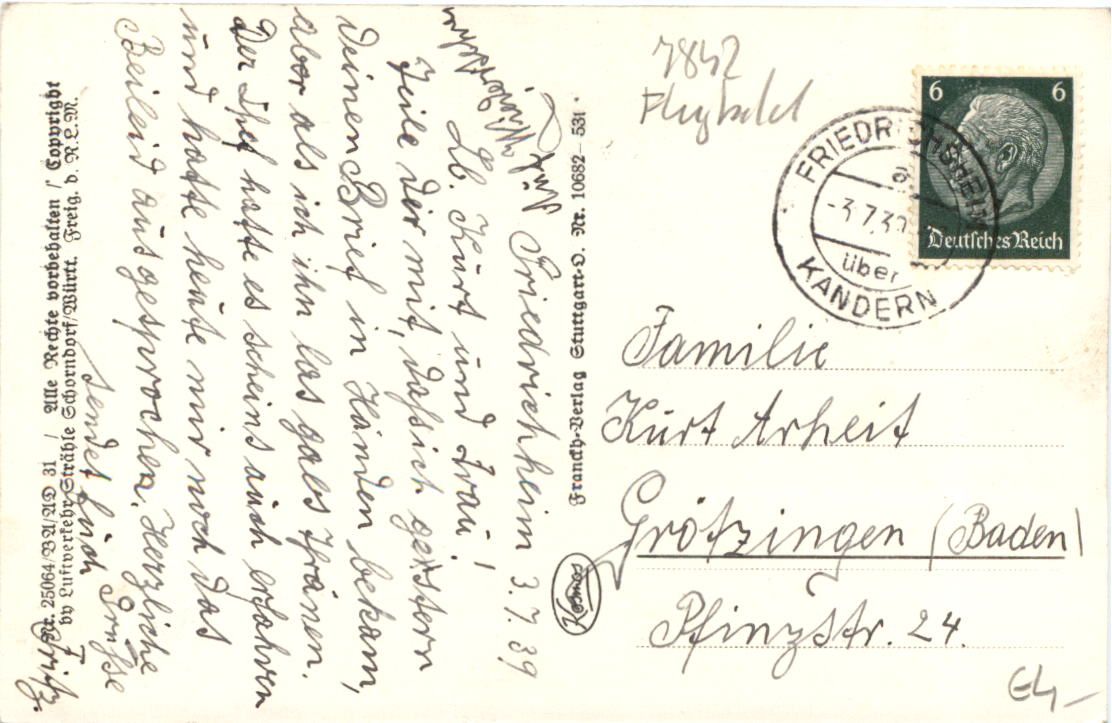 Friedrichheim 3.7.39
Lb. Kurt und Frau!
Teile Dir mit, daß ich gestern
Deinen Brief in Händen bekam,
aber als ich ihn las gabs Thränen.
Der Chef hatte es scheins auch erfahren
und hatte heute mir noch das
Beileid ausgesprochen. Herzliche
Grüsse
sendet Euch
Fritz
Nr. 25064/BA/AD 31 / Alle Rechte vorbehalten / Copyright
by Luftverkehr Strähle Schorndorf/Württ. Freig. d. R.L.M.
Franckh-Verlag Stuttgart-O. Nr. 10682-531
7842
6 6
Deutsches Reich
FRIEDRICHSHEIM
-3.7.39
über
KANDERN
Familie
Kurt Arheit
Grötzingen (Baden)
Pfinzstr. 24.